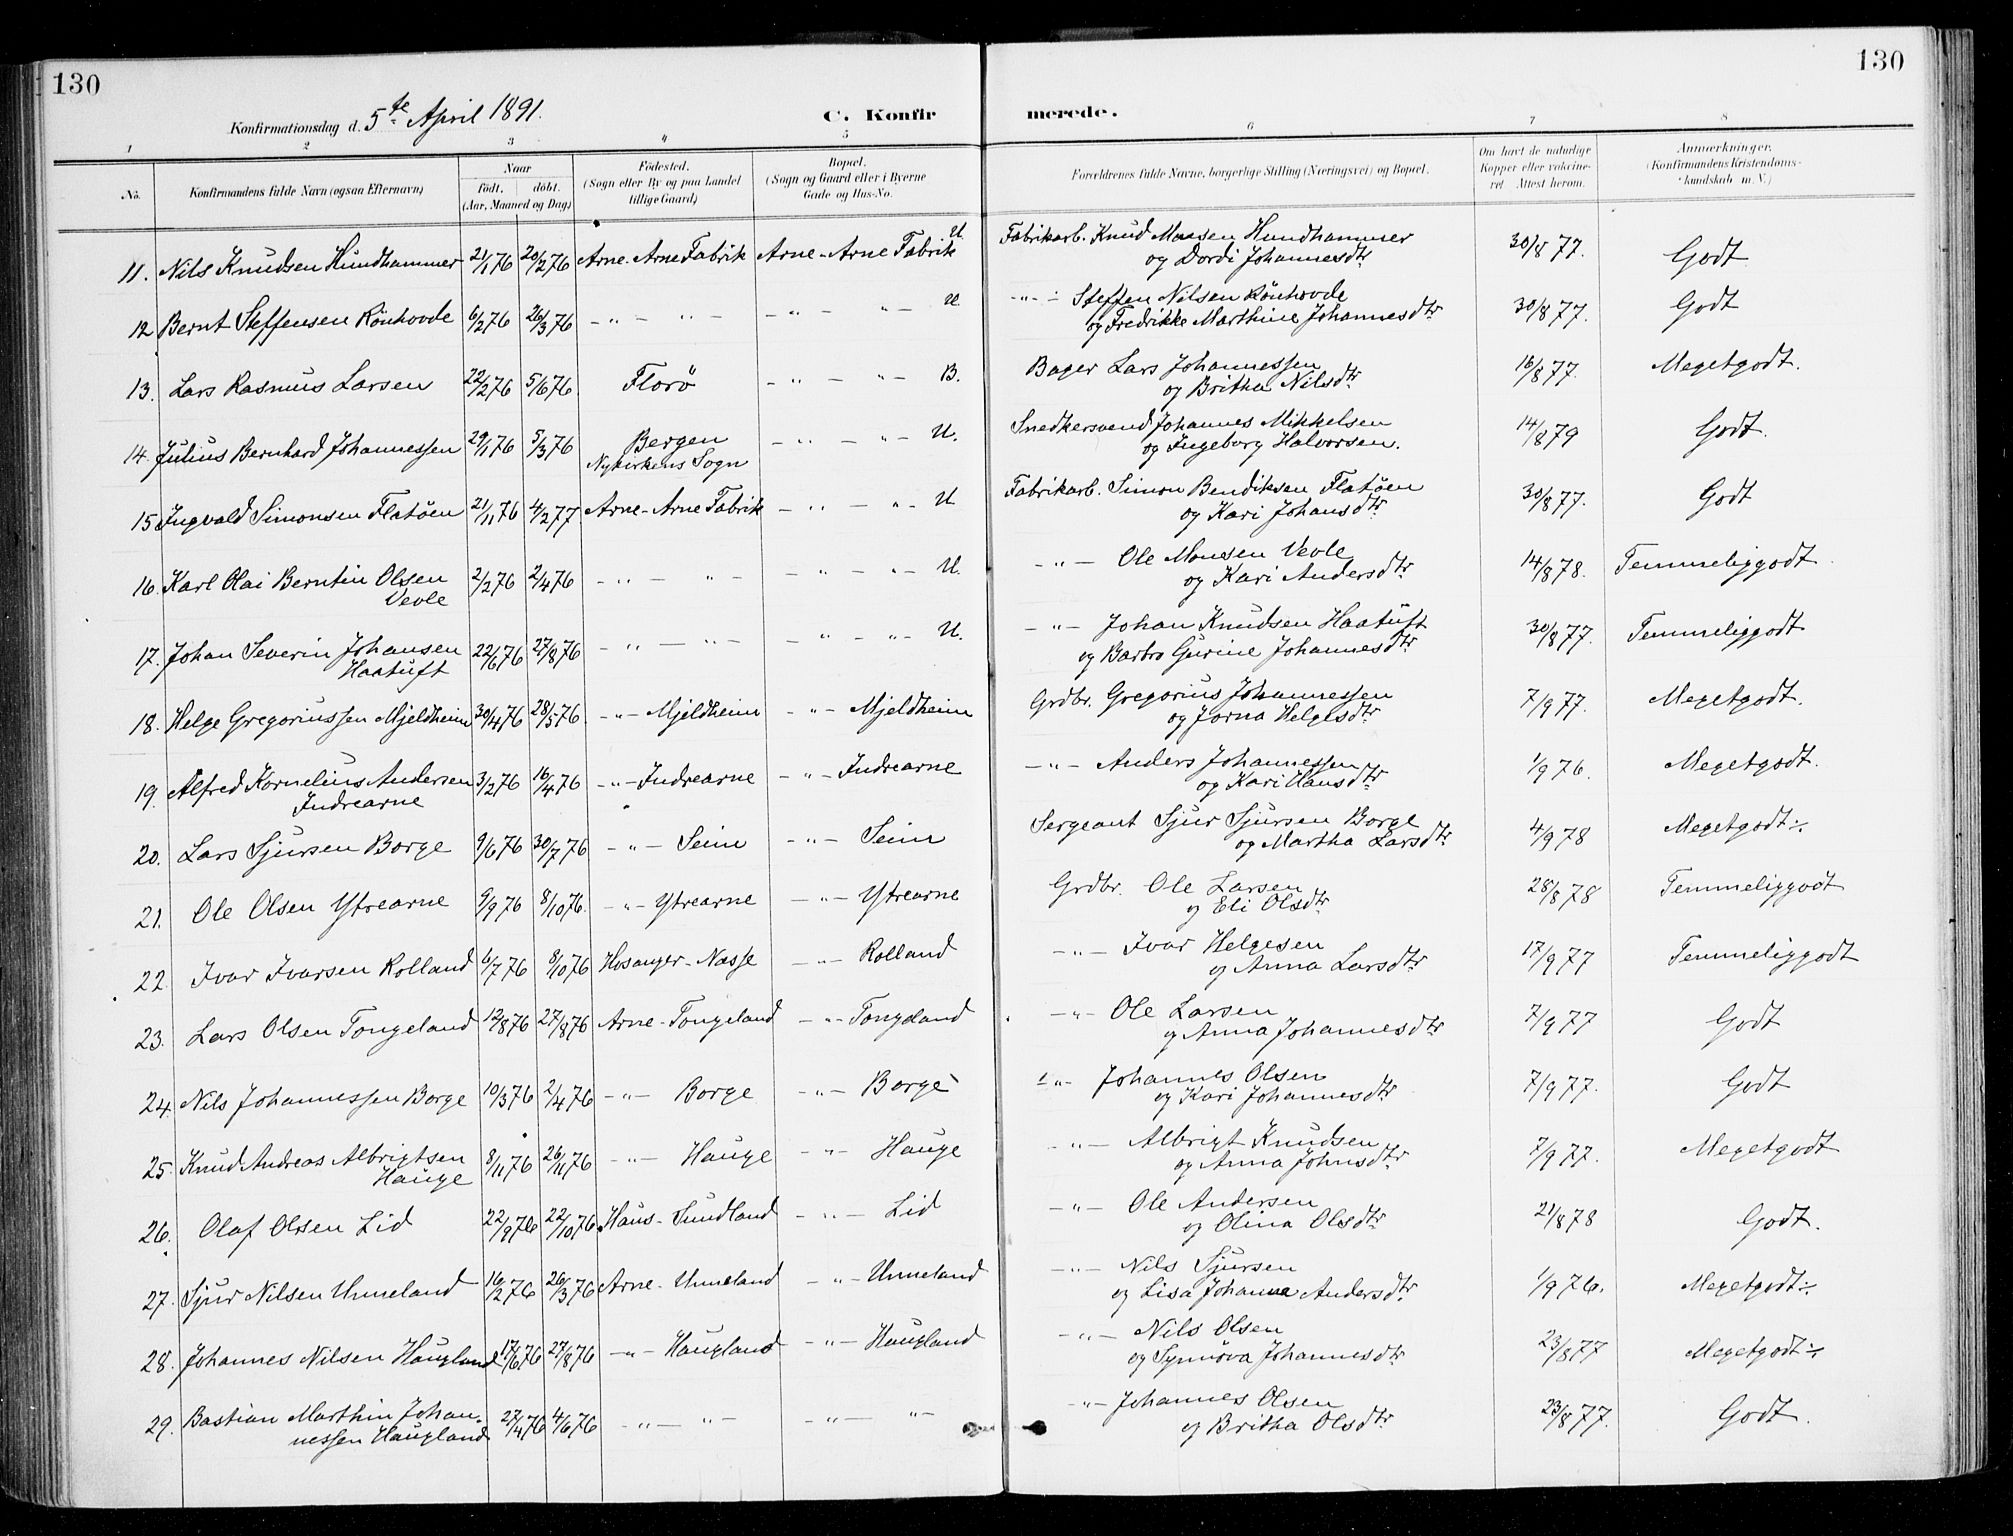 130
130
Konfirmationsdag d. 5te April 1891.
C. Konfirmerede.
1 2 3 4 5 6 7 8
No. Konfirmandens fulde Navn (ogsaa Efternavn) Naar født, døbt. (Aar, Maaned og Dag) Fødested. (Sogn eller By og paa Landet tillige Gaard) Bopæl. (Sogn og Gaard eller i Byerne Gade og Hus-No. Forældrenes fulde Navne, borgerlige Stilling (Næringsvei) og Bopæl. Om havt de naturlige Kopper eller vakcineret Attest herom. Anmærkninger. (Konfirmandens Kristendomskundskab m. V.)
11. Nils Knudsen Hundhammer 21/1 76 20/2 76 Arne-Arne Fabrik Arne-Arne Fabrik U. Fabrikarb. Knud Monsen Hundhammer 30/8 77. Godt
og Dordi Johannesdtr
12 Bernt Steffensen Rönhovde 6/2 76 26/3 76 - " - " - - " - " - U. - " - Steffen Nilsen Rönhovde 30/8 77. Godt
og Fredrikke Marthine Johannesdtr
13. Lars Rasmus Larsen 22/2 76 5/6 76. Florö - " - " - B. Bager Lars Johannessen 16/8 77. Megetgodt.
og Britha Nilsdtr
14. Julius Bernhard Johannessen 29/1 76 5/3 76 Bergen - " - " - U. Snedkersvend Johannes Mikkelsen 14/8 79 Godt.
Nykirkens Sogn og Ingeborg Halvorsen.
15 Ingvald Simonsen Flatöen 21/11 76 4/2 77 Arne-Arne Fabrik - " - " - U Fabrikarb. Simon Bendiksen Flatöen 30/8 77. Godt
og Kari Johansdtr
16. Karl Olai Berntin Olsen 2/2 76 2/4 76 - " - " - - " - " - U. - " - Ole Monsen Vevle 14/8 78. Temmeliggodt
Vevle og Kari Andersdtr
17. Johan Severin Johansen 22/6 76 27/8 76 - " - " - - " - " - U. - " - Johan Knudsen Haatuft 30/8 77. Temmeliggodt
Haatuft og Barbro Gurine Johannesdtr
18. Helge Gregoriussen Mjeldheim 30/4 76 28/5 76 - " - Mjeldheim - " - Mjeldheim Grdbr. Gregorius Johannessen 7/9 77. Megetgodt.
og Jorna Helgesdtr
19. Alfred Kornelius Andersen 3/2 76 16/4 76 - " - Indrearne - " - Indrearne - " - Anders Johannessen 1/9 76. Megetgodt.
Indrearne og Kari Hansdtr
20. Lars Sjursen Borge 9/6 76 30/7 76 - " - Seim - " - Seim Sergeant Sjur Sjursen Borge 4/9 78 Megetgodt÷
og Martha Larsdtr
21. Ole Olsen Ytrearne 9/9 76 8/10 76. - " - Ytrearne - " - Ytrearne Grdbr. Ole Larsen 28/8 78 Temmeliggodt
og Eli Olsdtr
22 Ivar Ivarsen Rolland 6/7 76 8/10 76 Hosanger-Nasse - " - Rolland - " - Ivar Helgesen 17/9 77 Temmeliggodt
og Anna Larsdtr
23. Lars Olsen Tongeland 12/8 76 27/8 76 Arne-Tongeland - " - Tongeland - " - Ole Larsen 7/9 77 Godt
og Anna Johannesdtr
24. Nils Johannessen Borge 10/3 76 2/4 76 - " - Borge - " - Borge - " - Johannes Olsen 7/9 77. Godt
og Kari Johannesdtr
25. Knud Andreas Albrigtsen 8/11 76 26/11 76 - " - Hauge - " - Hauge - " - Albrigt Knudsen 7/9 77. Megetgodt
Hauge og Anna Johnsdtr
26. Olaf Olsen Lid 22/9 76 22/10 76 Haus-Sundland - " - Lid - " - Ole Andersen 21/8 78 Godt.
og Olina Olsdtr
27. Sjur Nilsen Unneland 16/2 76 26/3 76 Arne-Unneland - " - Unneland - " - Nils Sjursen 1/9 76. Megetgodt÷
og Lisa Johanna Andersdtr
28. Johannes Nilsen Haugland 17/6 76 27/8 76 - " - Haugland - " - Haugland - " - Nils Olsen 23/8 77 Megetgodt÷
og Synnöva Johannesdtr
29. Bastian Marthin Johan- 27/4 76 4/6 76 - " - " - - " - " - - " - Johannes Olsen 23/8 77. Godt.
nessen Haugland og Britha Olsdtr